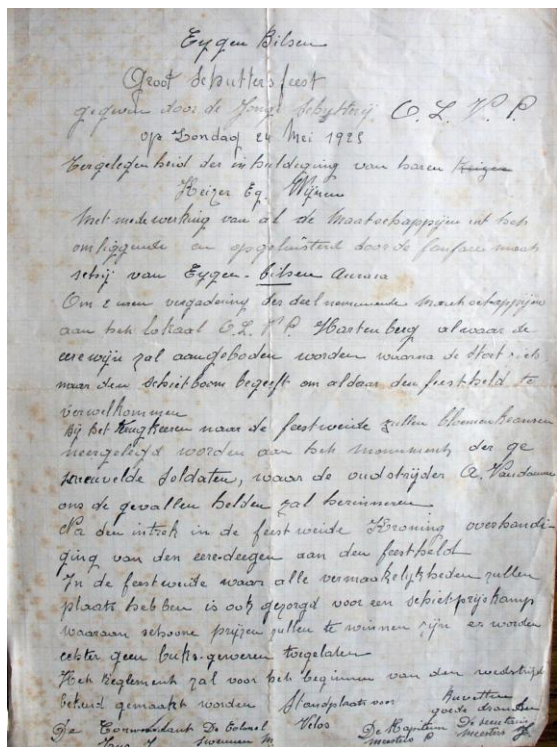 Eygen Bilsen
Groot Schuttersfeest
gegeven door de Jonge Schutterij O. L. V. P.
op Zondag 24 Mei 1925
Tergelegenheid der inhuldiging van haren Keizer
Keizer Eg. Wijnen
Met medewerking van al de Maatschappijen uit het
omliggende en opgeluisterd door de fanfare maat
schij van Eygen-Bilsen Aurora
Om 2 uren vergadering der deelnemende Maatschappijen
aan het lokaal O.L.V.P. Hartenberg alwaar de
eerewijn zal aangeboden worden waarna de Stoet zich
naar den Schietboom begeeft om aldaar den feestheld te
verwelkommen
Bij het terugkeeren naar de feestweide zullen bloemenkransen
neergelegd worden aan het monument der ge
sneuvelde soldaten, waar de oudstrijder A. Vandamme
ons de gevallen helden zal herinneren
Na den intrek in de feestweide Kroning overhandi
ging van den eeredeegen aan den feestheld
In de feestweide waar alle vermaakelykheden zullen
plaats hebben is ook gezorgd voor een schietprijskamp
waaraan schoone prijzen zullen te winnen zijn er worden
echter geen buks-geweren toegelaten
Het Reglement zal voor het beginnen van den wedstrijd
bekend gemaakt worden Standplaats voor Buvetten
Velos goede dranken
De Commandant De Colonel De Kapitein De secretaris
Swennen M. Meesters P Meesters